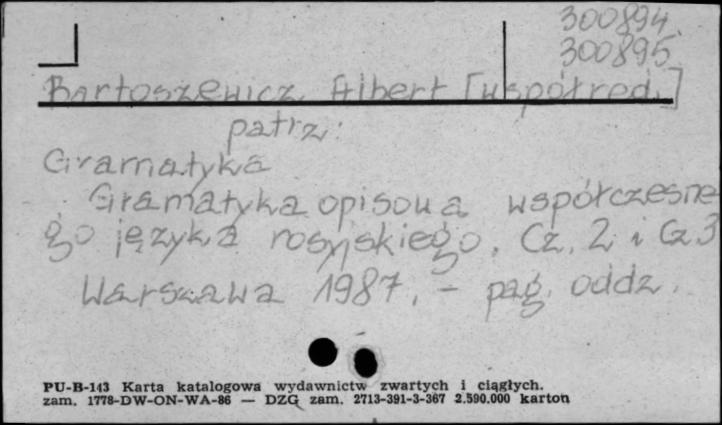 300894
300895
Bartoszewicz, Albert [współred.]
patrz:
Gramatyka
Gramatyka opisowa współczesne
go języka rosyjskiego. Cz. 2 i Cz 3
Warszawa 1987. - pag. oddz.
PU-B-143 Karta katalogowa wydawnictw zwartych i ciągłych.
zam. 1778-DW-ON-WA-86 — DZG zam. 2713-391-3-367 2.590.000 karton